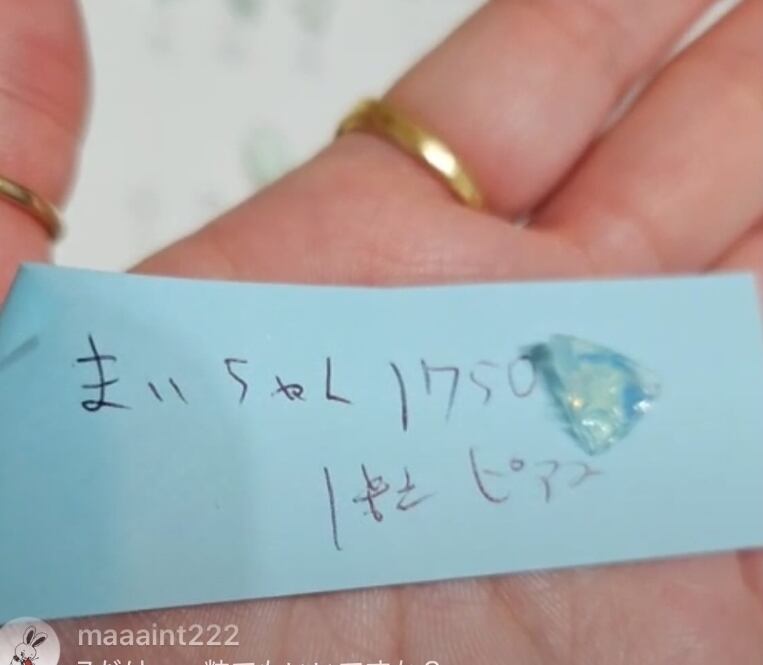 まいちゃん 1750
1粒 ピアス
maaaint222